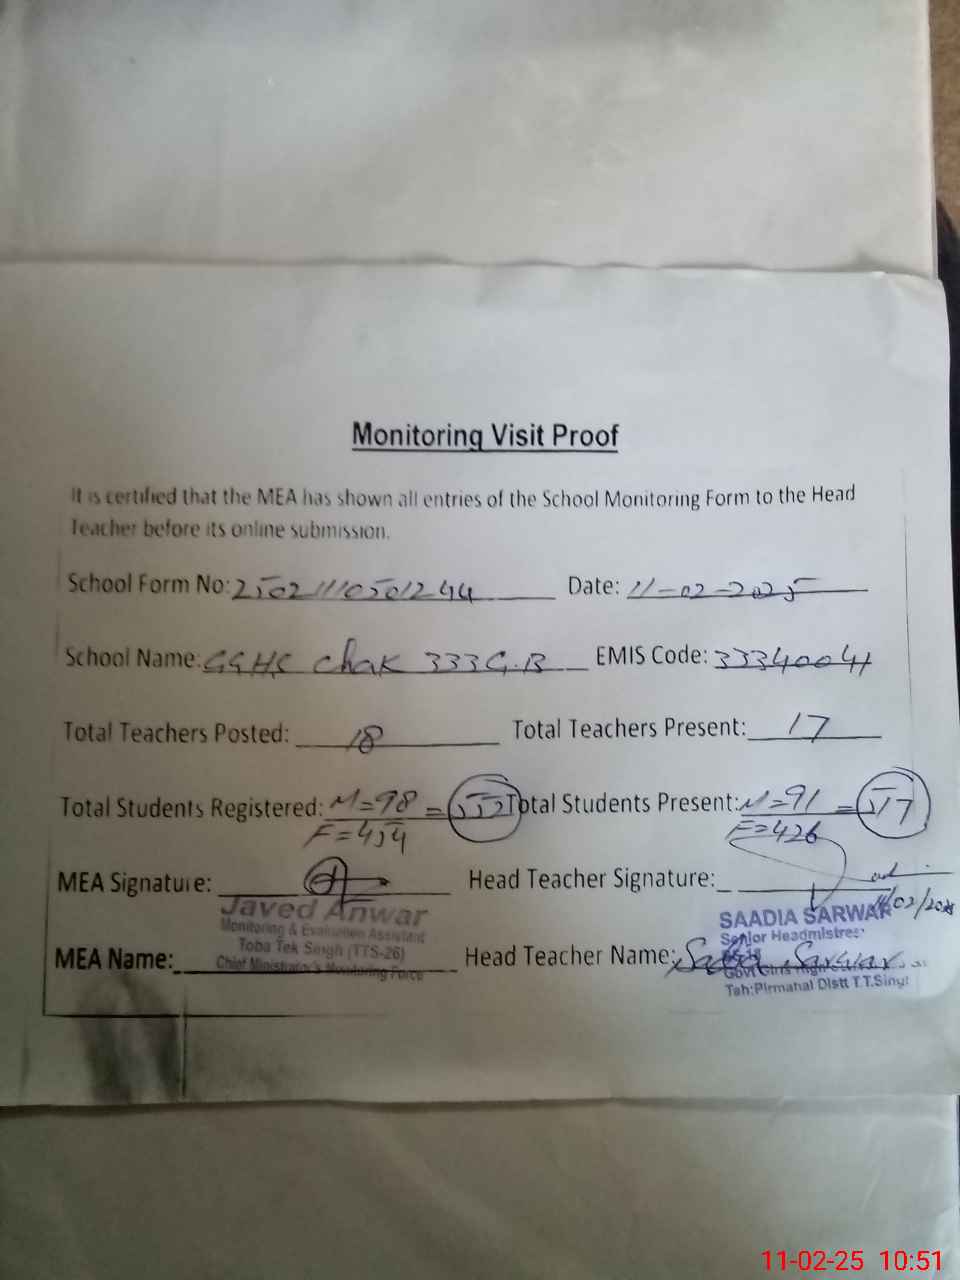 Monitoring Visit Proof
It is certified that the MEA has shown all entries of the School Monitoring Form to the Head
Teacher before its online submission.
School Form No: 25021110501244 Date: 11-02-2025
School Name: GGHS Chak 333 G.B EMIS Code: 33340041
Total Teachers Posted: 18 Total Teachers Present: 17
Total Students Registered: M=98 = 552 Total Students Present: M=91 = 517
F=454 F=426
MEA Signature: Head Teacher Signature:
11/02/2025
Javed Anwar SAADIA SARWAR
Monitoring & Evaluation Assistant Senior Headmistress
Toba Tek Singh (TTS-26)
MEA Name: Chief Minister's Monitoring Force Head Teacher Name: Sadia Sarwar
Govt Girls High
Teh:Pirmahal Distt T.T.Singh
11-02-25 10:51